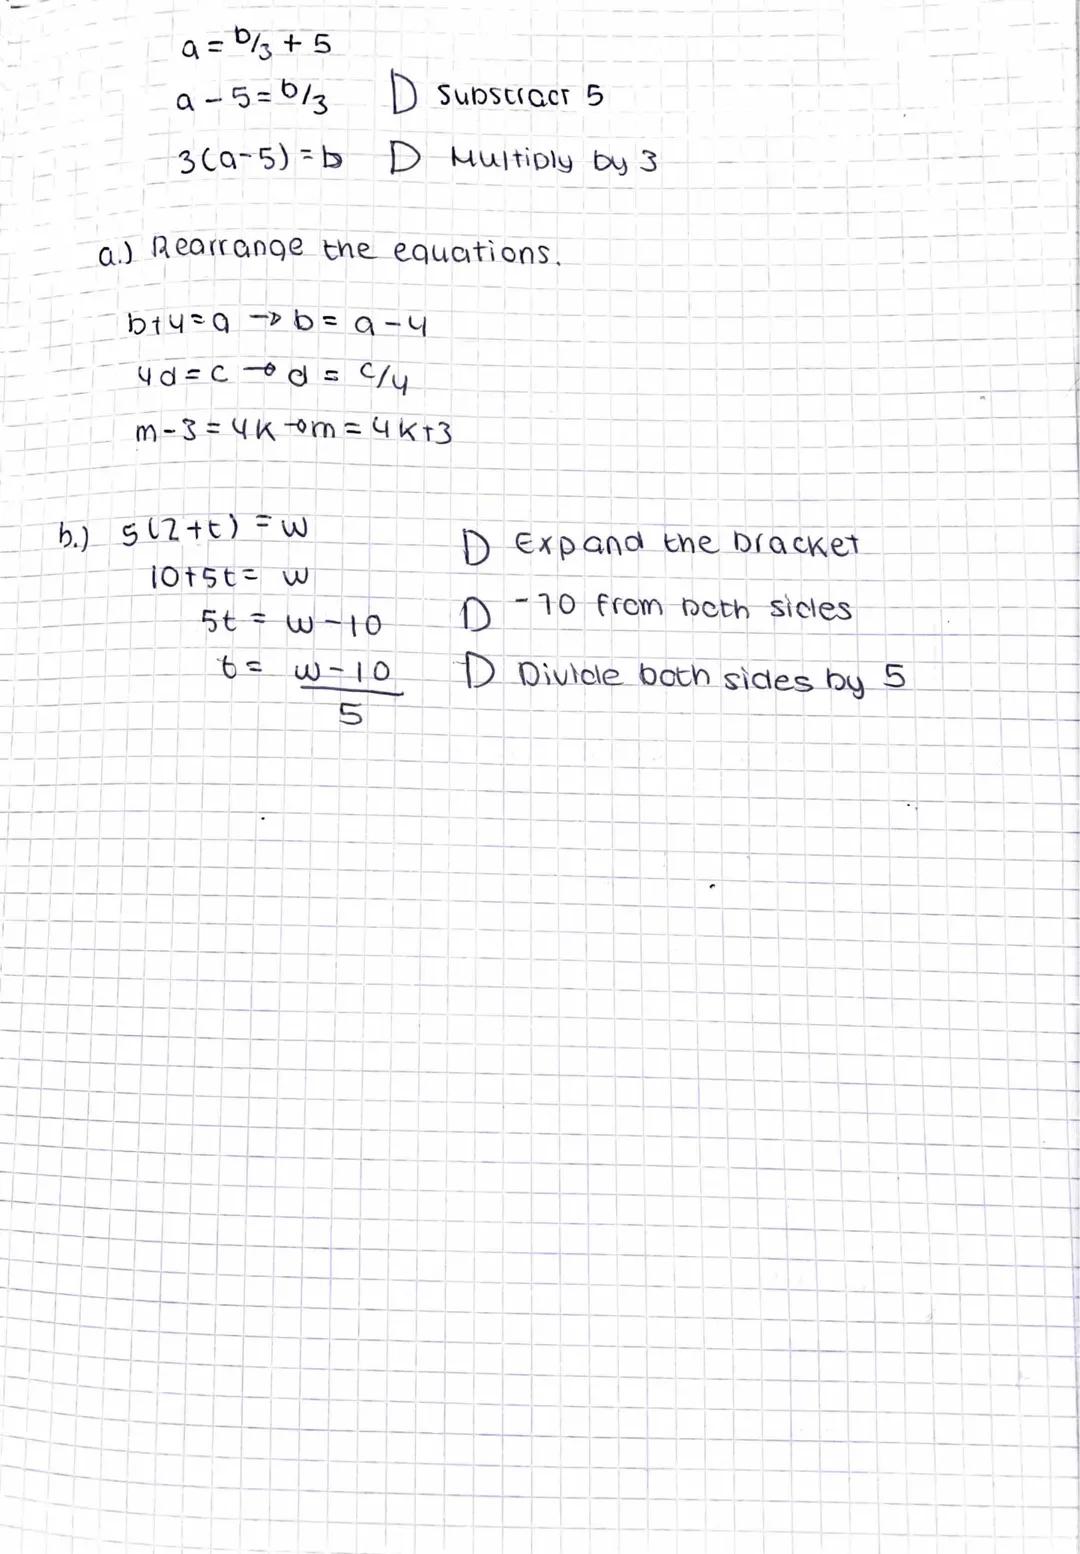 a = b/3 + 5
a - 5 = b/3 D Substract 5
3(a-5) = b D Multiply by 3
a.) Rearrange the equations.
b+4=a → b = a-4
4d=c → d = c/4
m-3 = 4k → m = 4k+3
b.) 5(2+t) = w
D Expand the bracket
10+5t = w
5t = w-10 D -10 from both sides
t = w-10 D Divide both sides by 5
5